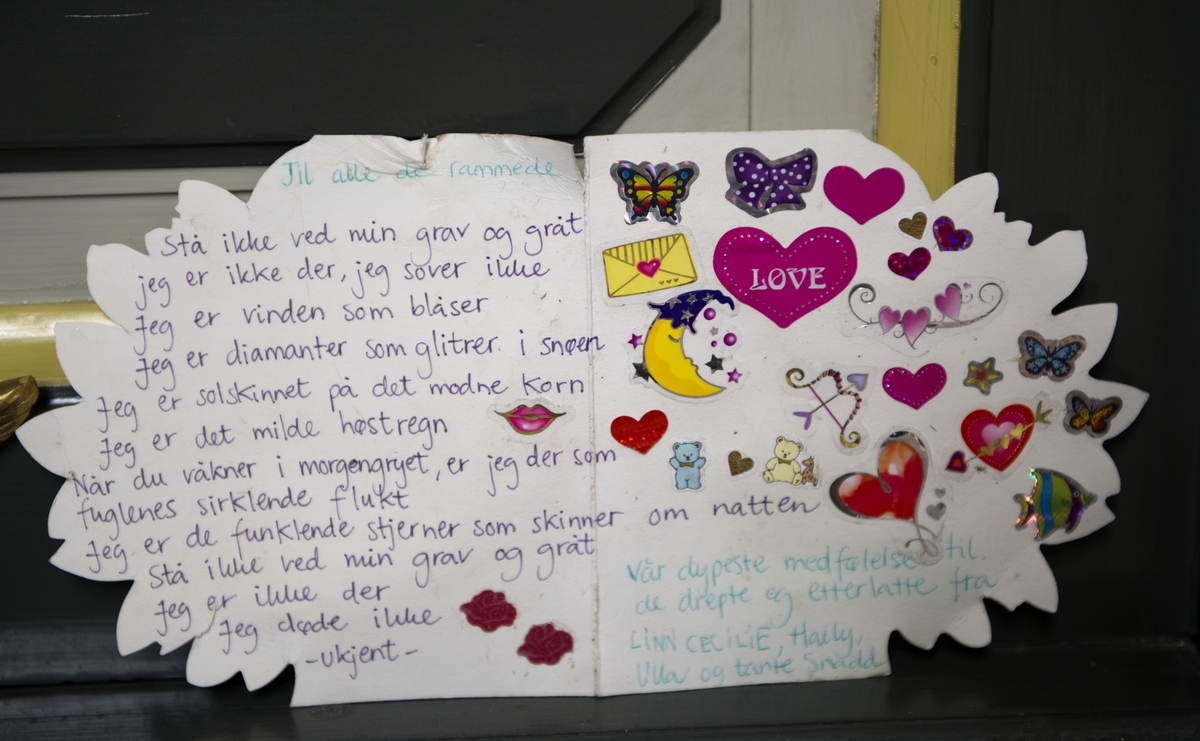 Til alle de rammede
Stå ikke ved min grav og gråt
jeg er ikke der, jeg sover ikke
Jeg er vinden som blåser
Jeg er diamanter som glitrer i snøen
Jeg er solskinnet på det modne korn
Jeg er det milde høstregn
Når du våkner i morgengryet, er jeg der som
fuglenes sirklende flukt
Jeg er de funklende stjerner som skinner om natten
Stå ikke ved min grav og gråt
Jeg er ikke der
Jeg døde ikke
-Ukjent-
LOVE
Vår dypeste medfølelse til
de drepte og etterlatte fra
LINN CECILIE, Haily,
Ulla og tante Snadd